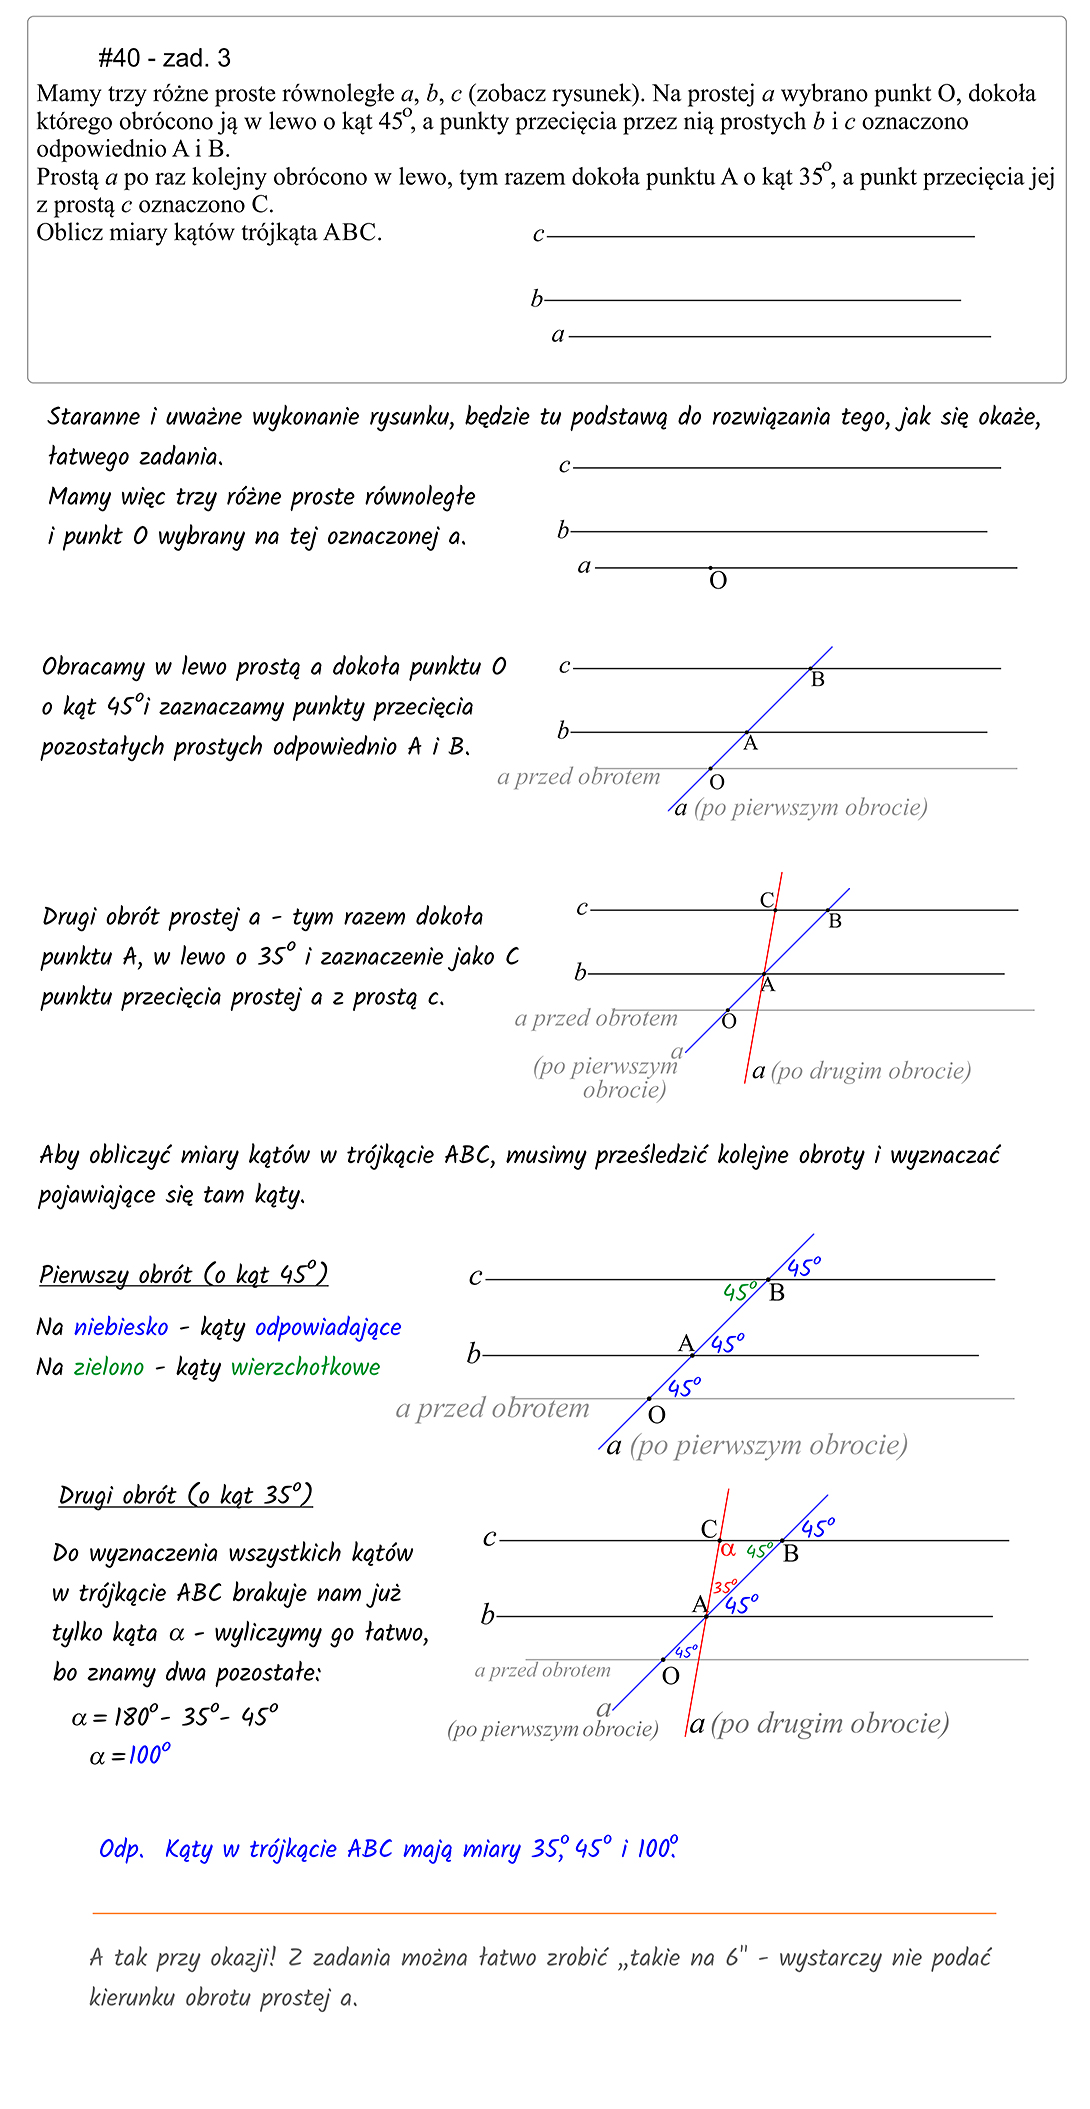 #40 - zad. 3
Mamy trzy różne proste równoległe a, b, c (zobacz rysunek). Na prostej a wybrano punkt O, dokoła
którego obrócono ją w lewo o kąt 45°, a punkty przecięcia przez nią prostych b i c oznaczono
odpowiednio A i B.
Prostą a po raz kolejny obrócono w lewo, tym razem dokoła punktu A o kąt 35°, a punkt przecięcia jej
z prostą c oznaczono C.
Oblicz miary kątów trójkąta ABC.
c
b
a
Staranne i uważne wykonanie rysunku, będzie tu podstawą do rozwiązania tego, jak się okaże,
łatwego zadania.
Mamy więc trzy różne proste równoległe
i punkt O wybrany na tej oznaczonej a.
c
b
a
O
Obracamy w lewo prostą a dokoła punktu O
o kąt 45°i zaznaczamy punkty przecięcia
pozostałych prostych odpowiednio A i B.
c
B
b
A
a przed obrotem
O
a (po pierwszym obrocie)
Drugi obrót prostej a - tym razem dokoła
punktu A, w lewo o 35° i zaznaczenie jako C
punktu przecięcia prostej a z prostą c.
c
C
B
b
A
a przed obrotem
O
a
(po pierwszym
obrocie)
a (po drugim obrocie)
Aby obliczyć miary kątów w trójkącie ABC, musimy prześledzić kolejne obroty i wyznaczać
pojawiające się tam kąty.
Pierwszy obrót (o kąt 45°)
Na niebiesko - kąty odpowiadające
Na zielono - kąty wierzchołkowe
c
45°
45°
B
b
A
45°
45°
a przed obrotem
O
a (po pierwszym obrocie)
Drugi obrót (o kąt 35°)
Do wyznaczenia wszystkich kątów
w trójkącie ABC brakuje nam już
tylko kąta α - wyliczymy go łatwo,
bo znamy dwa pozostałe:
α = 180° - 35° - 45°
α = 100°
c
C
45°
α
45°
B
35°
b
A
45°
45°
a przed obrotem
O
a
(po pierwszym obrocie)
a (po drugim obrocie)
Odp. Kąty w trójkącie ABC mają miary 35°, 45° i 100°.
A tak przy okazji! Z zadania można łatwo zrobić „takie na 6" - wystarczy nie podać
kierunku obrotu prostej a.